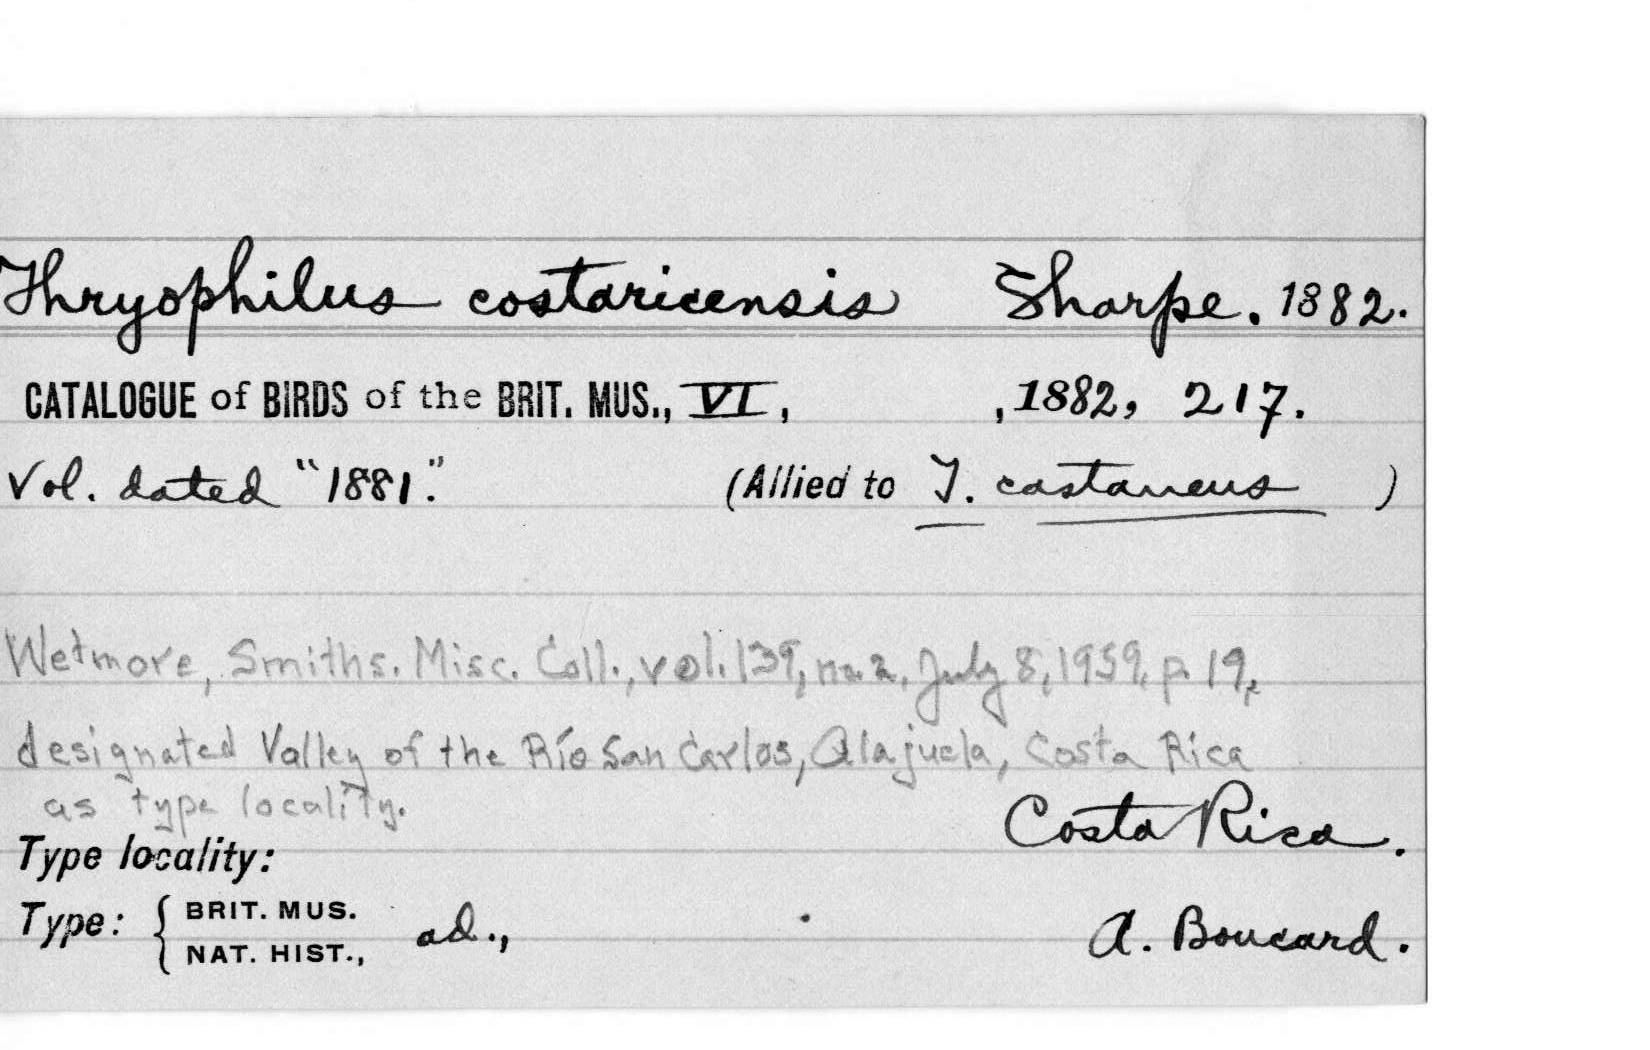 Thryophilus costaricensis Sharpe. 1882.
CATALOGUE of BIRDS of the BRIT. MUS., VI, , 1882, 217.
Vol. dated "1881." (Allied to T. castaneus )
Wetmore, Smiths. Misc. Coll., vol. 139, no. 2, July 8, 1959, p. 19,
designated Valley of the Río San Carlos, Alajuela, Costa Rica
as type locality.
Costa Rica.
Type locality:
Type: { BRIT. MUS.
NAT. HIST., ad., A. Boucard.